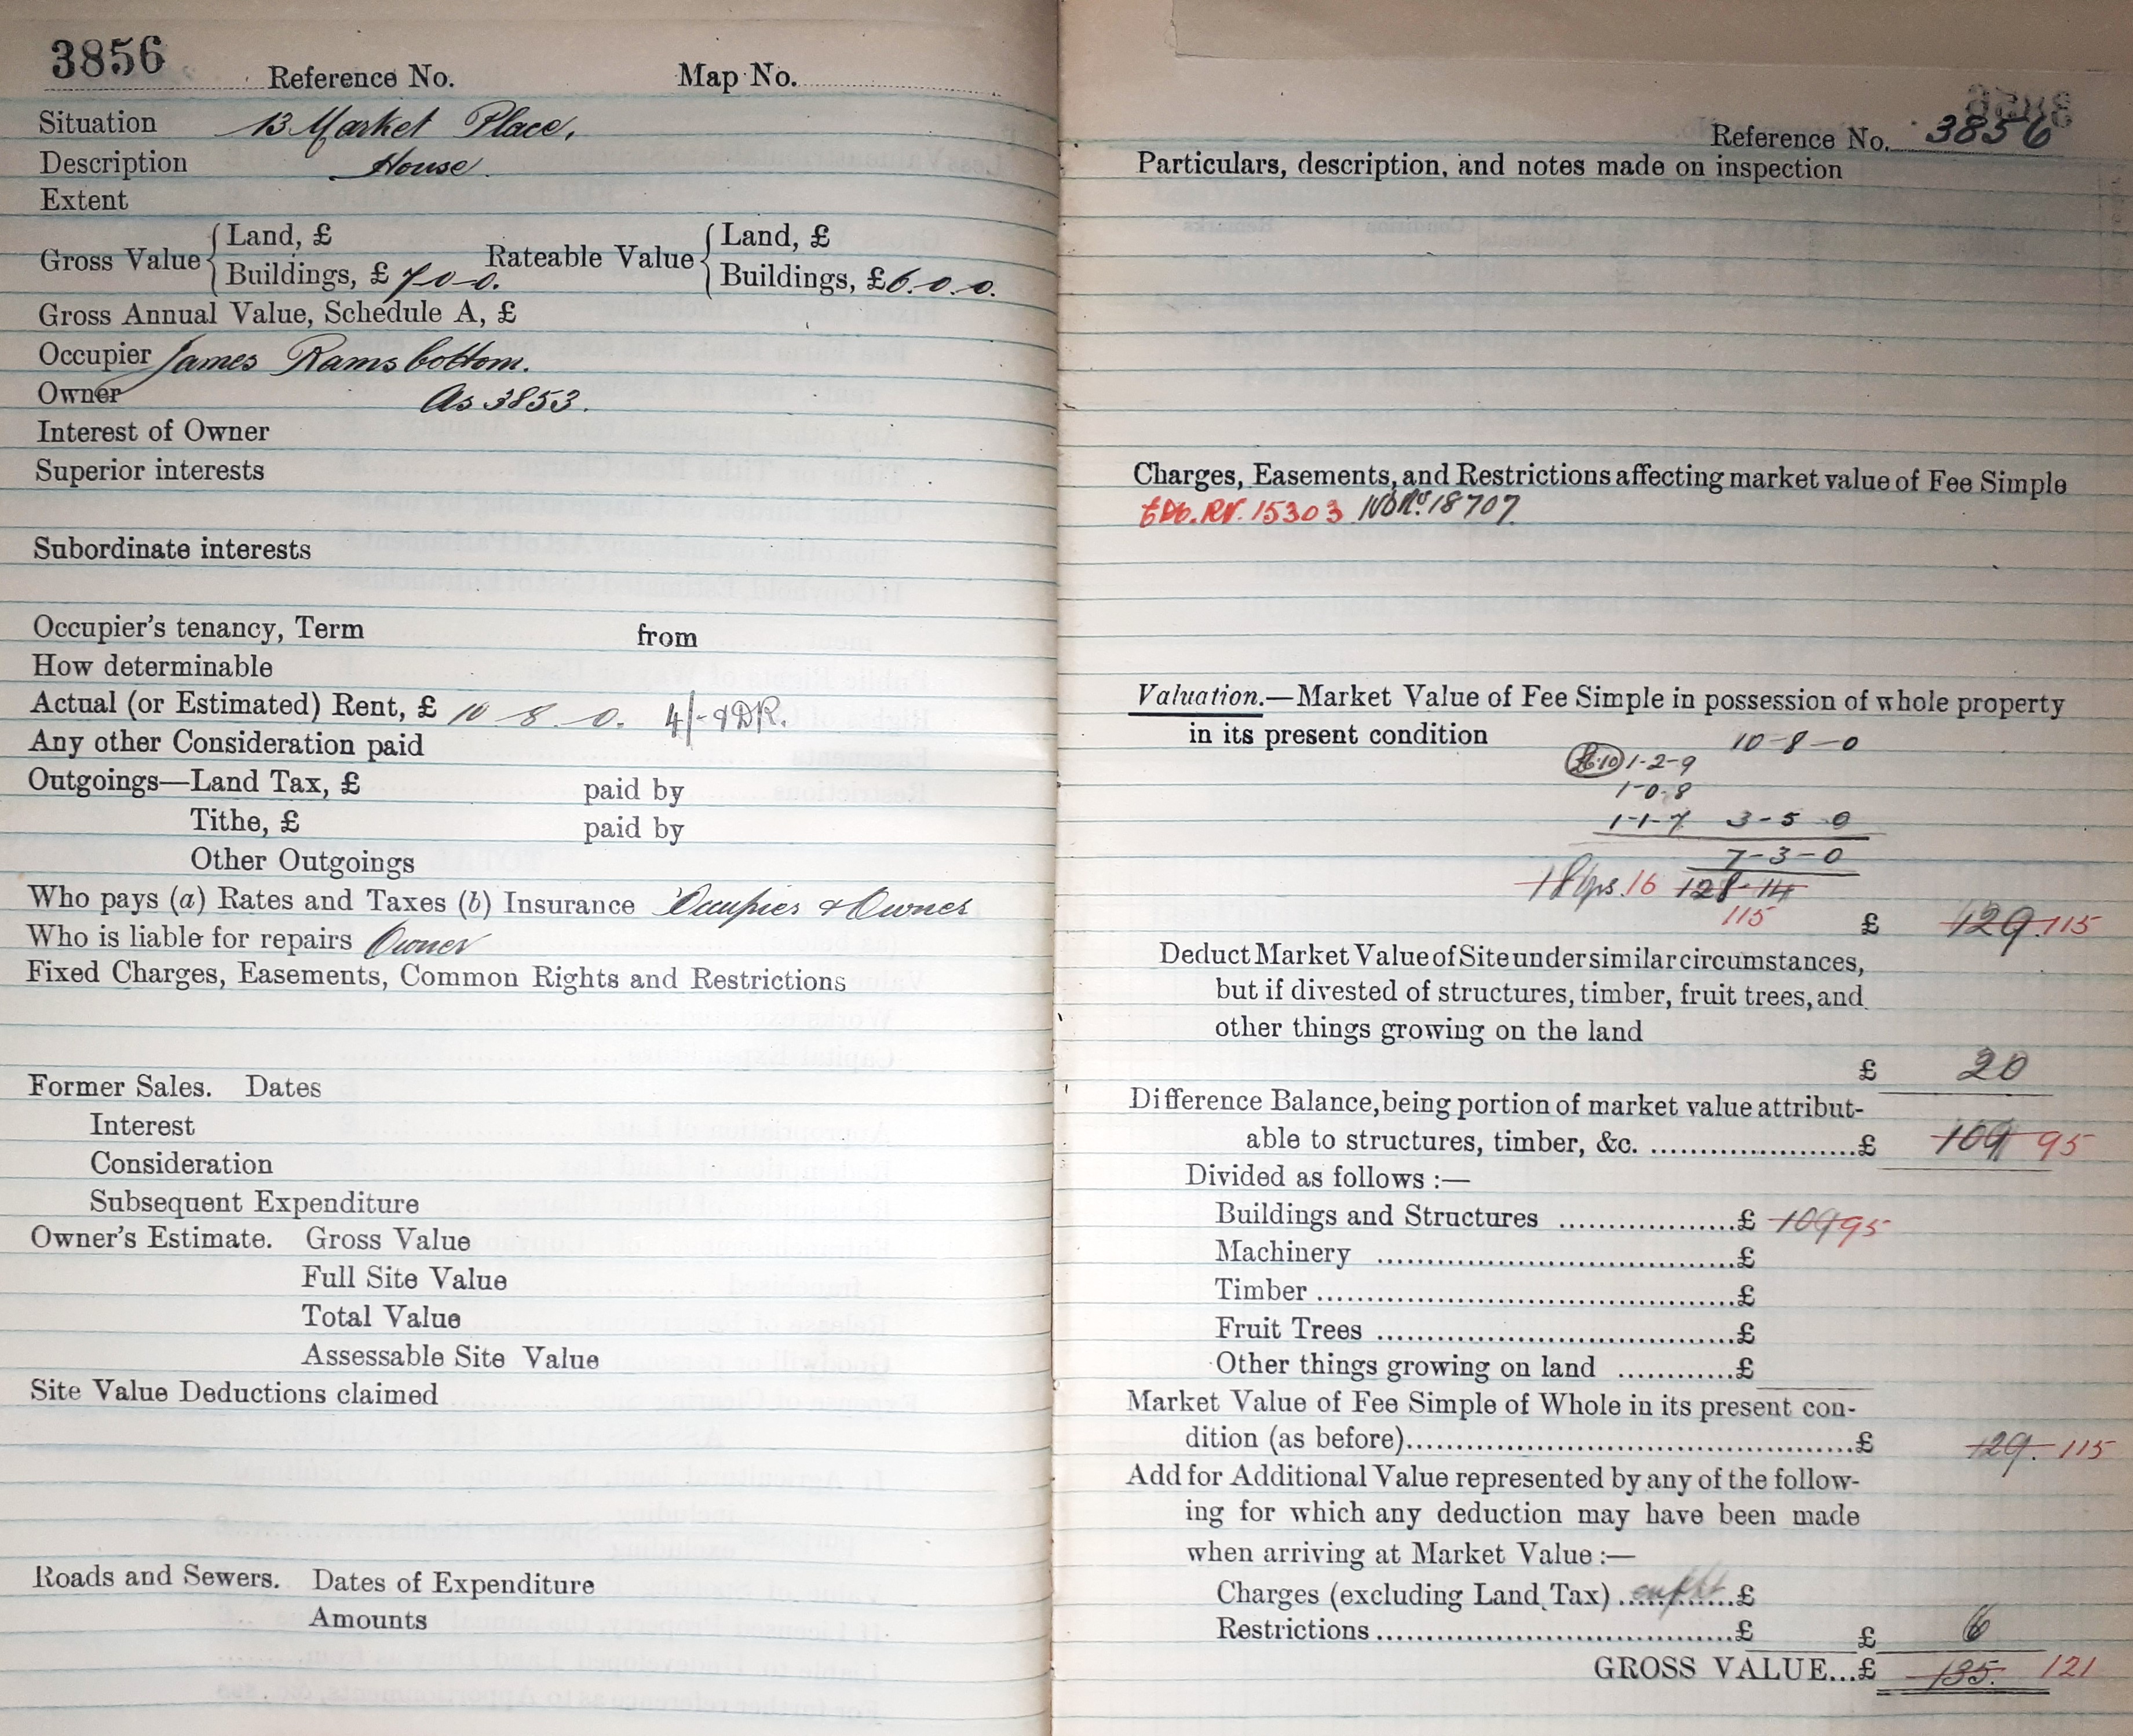 3856 Reference No. Map No.
Situation 13 Market Place,
Description House.
Extent
Gross Value { Land, £ Rateable Value { Land, £
Buildings, £ 7 0 0. Buildings, £6. 0. 0.
Gross Annual Value, Schedule A, £
Occupier James Ramsbottom.
Owner As 3853.
Interest of Owner
Superior interests
Subordinate interests
Occupier's tenancy, Term from
How determinable
Actual (or Estimated) Rent, £ 10 8. 0. 4/- & DR.
Any other Consideration paid
Outgoings—Land Tax, £ paid by
Tithe, £ paid by
Other Outgoings
Who pays (a) Rates and Taxes (b) Insurance Occupier & Owner
Who is liable for repairs Owner
Fixed Charges, Easements, Common Rights and Restrictions
Former Sales. Dates
Interest
Consideration
Subsequent Expenditure
Owner's Estimate. Gross Value
Full Site Value
Total Value
Assessable Site Value
Site Value Deductions claimed
Roads and Sewers. Dates of Expenditure
Amounts
Reference No. 3856
Particulars, description, and notes made on inspection
Charges, Easements, and Restrictions affecting market value of Fee Simple
15303 18707
Valuation.—Market Value of Fee Simple in possession of whole property
in its present condition 10-8-0
1-2-9
1-0-8
1-1-7 3-5 0
7-3-0
18yrs. 16 128-14
115
£ 129. 115
Deduct Market Value of Site under similar circumstances,
but if divested of structures, timber, fruit trees, and
other things growing on the land
£ 20
Difference Balance, being portion of market value attribut-
able to structures, timber, &c. ....................£ 109 95
Divided as follows :—
Buildings and Structures .................£ 109 95
Machinery ..................................£
Timber ........................................£
Fruit Trees ..................................£
Other things growing on land ............£
Market Value of Fee Simple of Whole in its present con-
dition (as before)...........................................£ 129. 115
Add for Additional Value represented by any of the follow-
ing for which any deduction may have been made
when arriving at Market Value :—
Charges (excluding Land Tax) ............£
Restrictions ..................................£ £ 6
GROSS VALUE...£ 135. 121